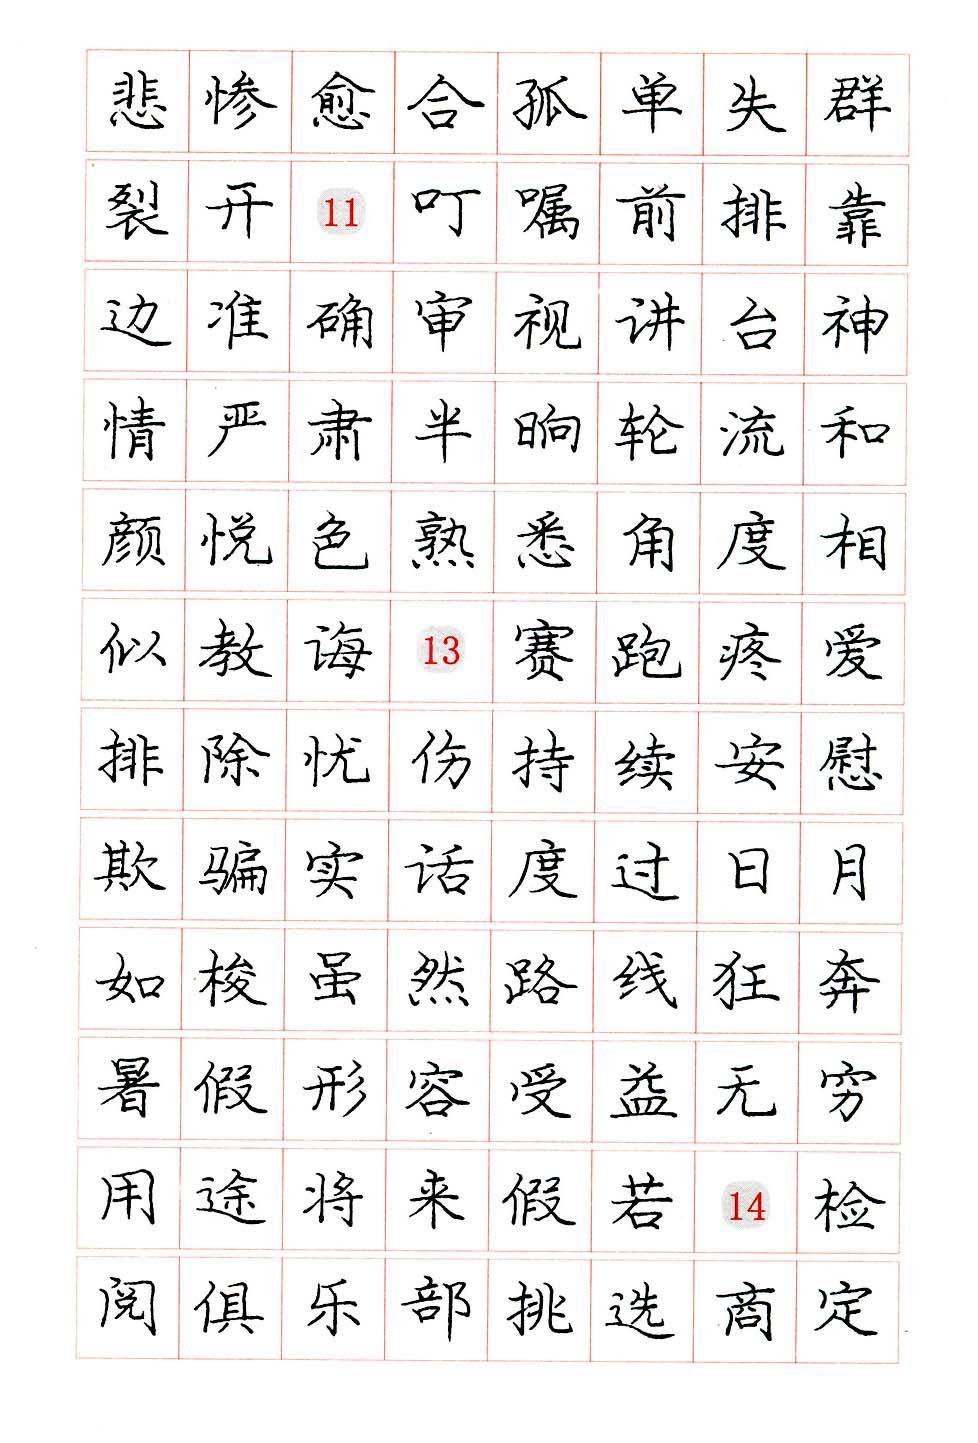 悲惨愈合孤单失群
裂开11叮嘱前排靠
边准确审视讲台神
情严肃半晌轮流和
颜悦色熟悉角度相
似教诲13赛跑疼爱
排除忧伤持续安慰
欺骗实话度过日月
如梭虽然路线狂奔
暑假形容受益无穷
用途将来假若14检
阅俱乐部挑选商定